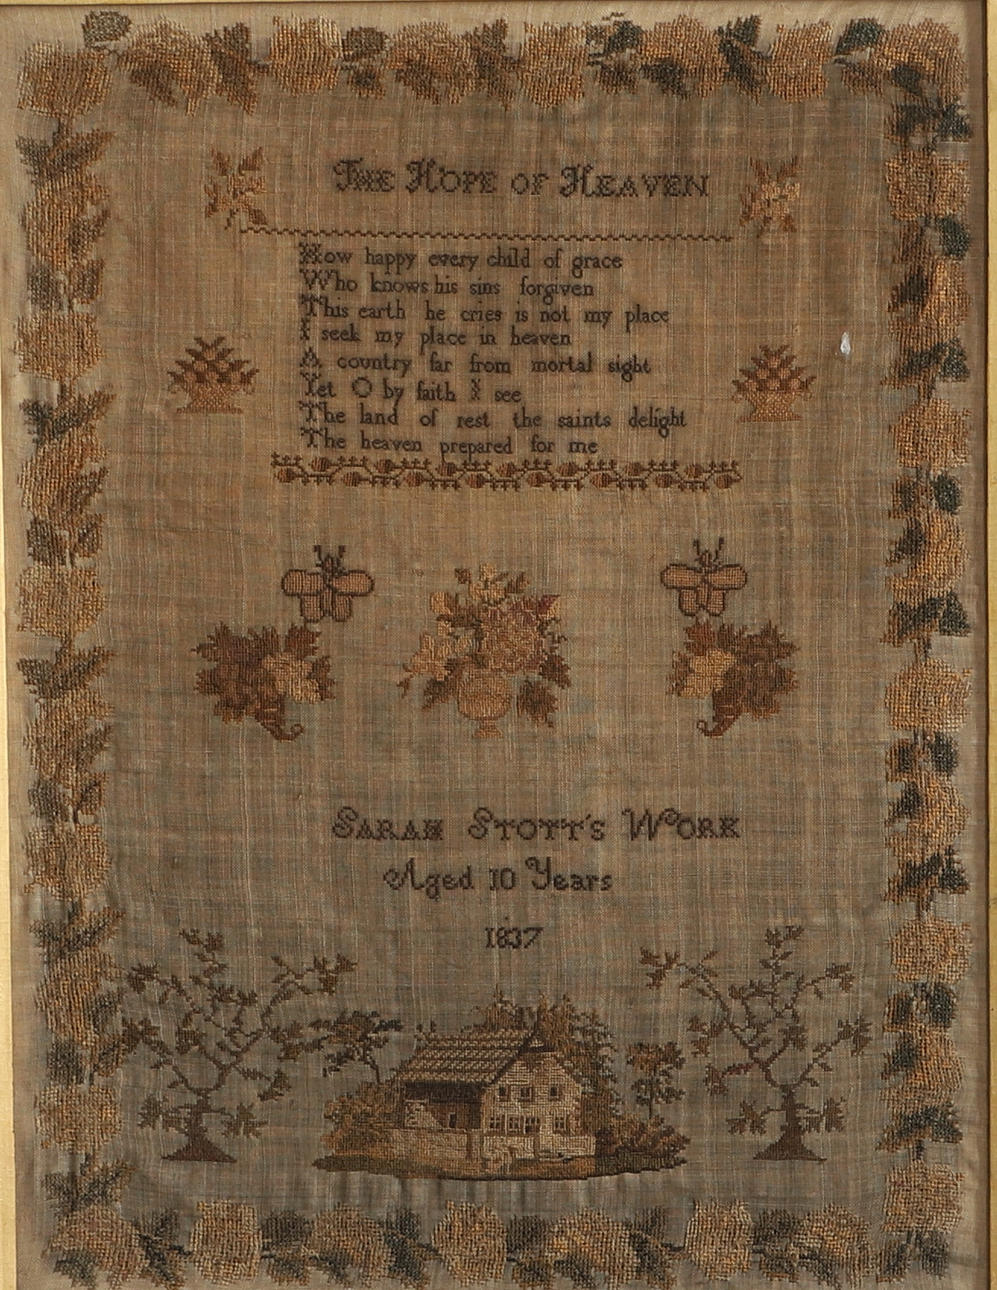 THE HOPE OF HEAVEN
How happy every child of grace
Who knows his sins forgiven
This earth he cries is not my place
I seek my place in heaven
A country far from mortal sight
Yet O by faith I see
The land of rest the saints delight
The heaven prepared for me
SARAH STOTT'S WORK
Aged 10 Years
1837